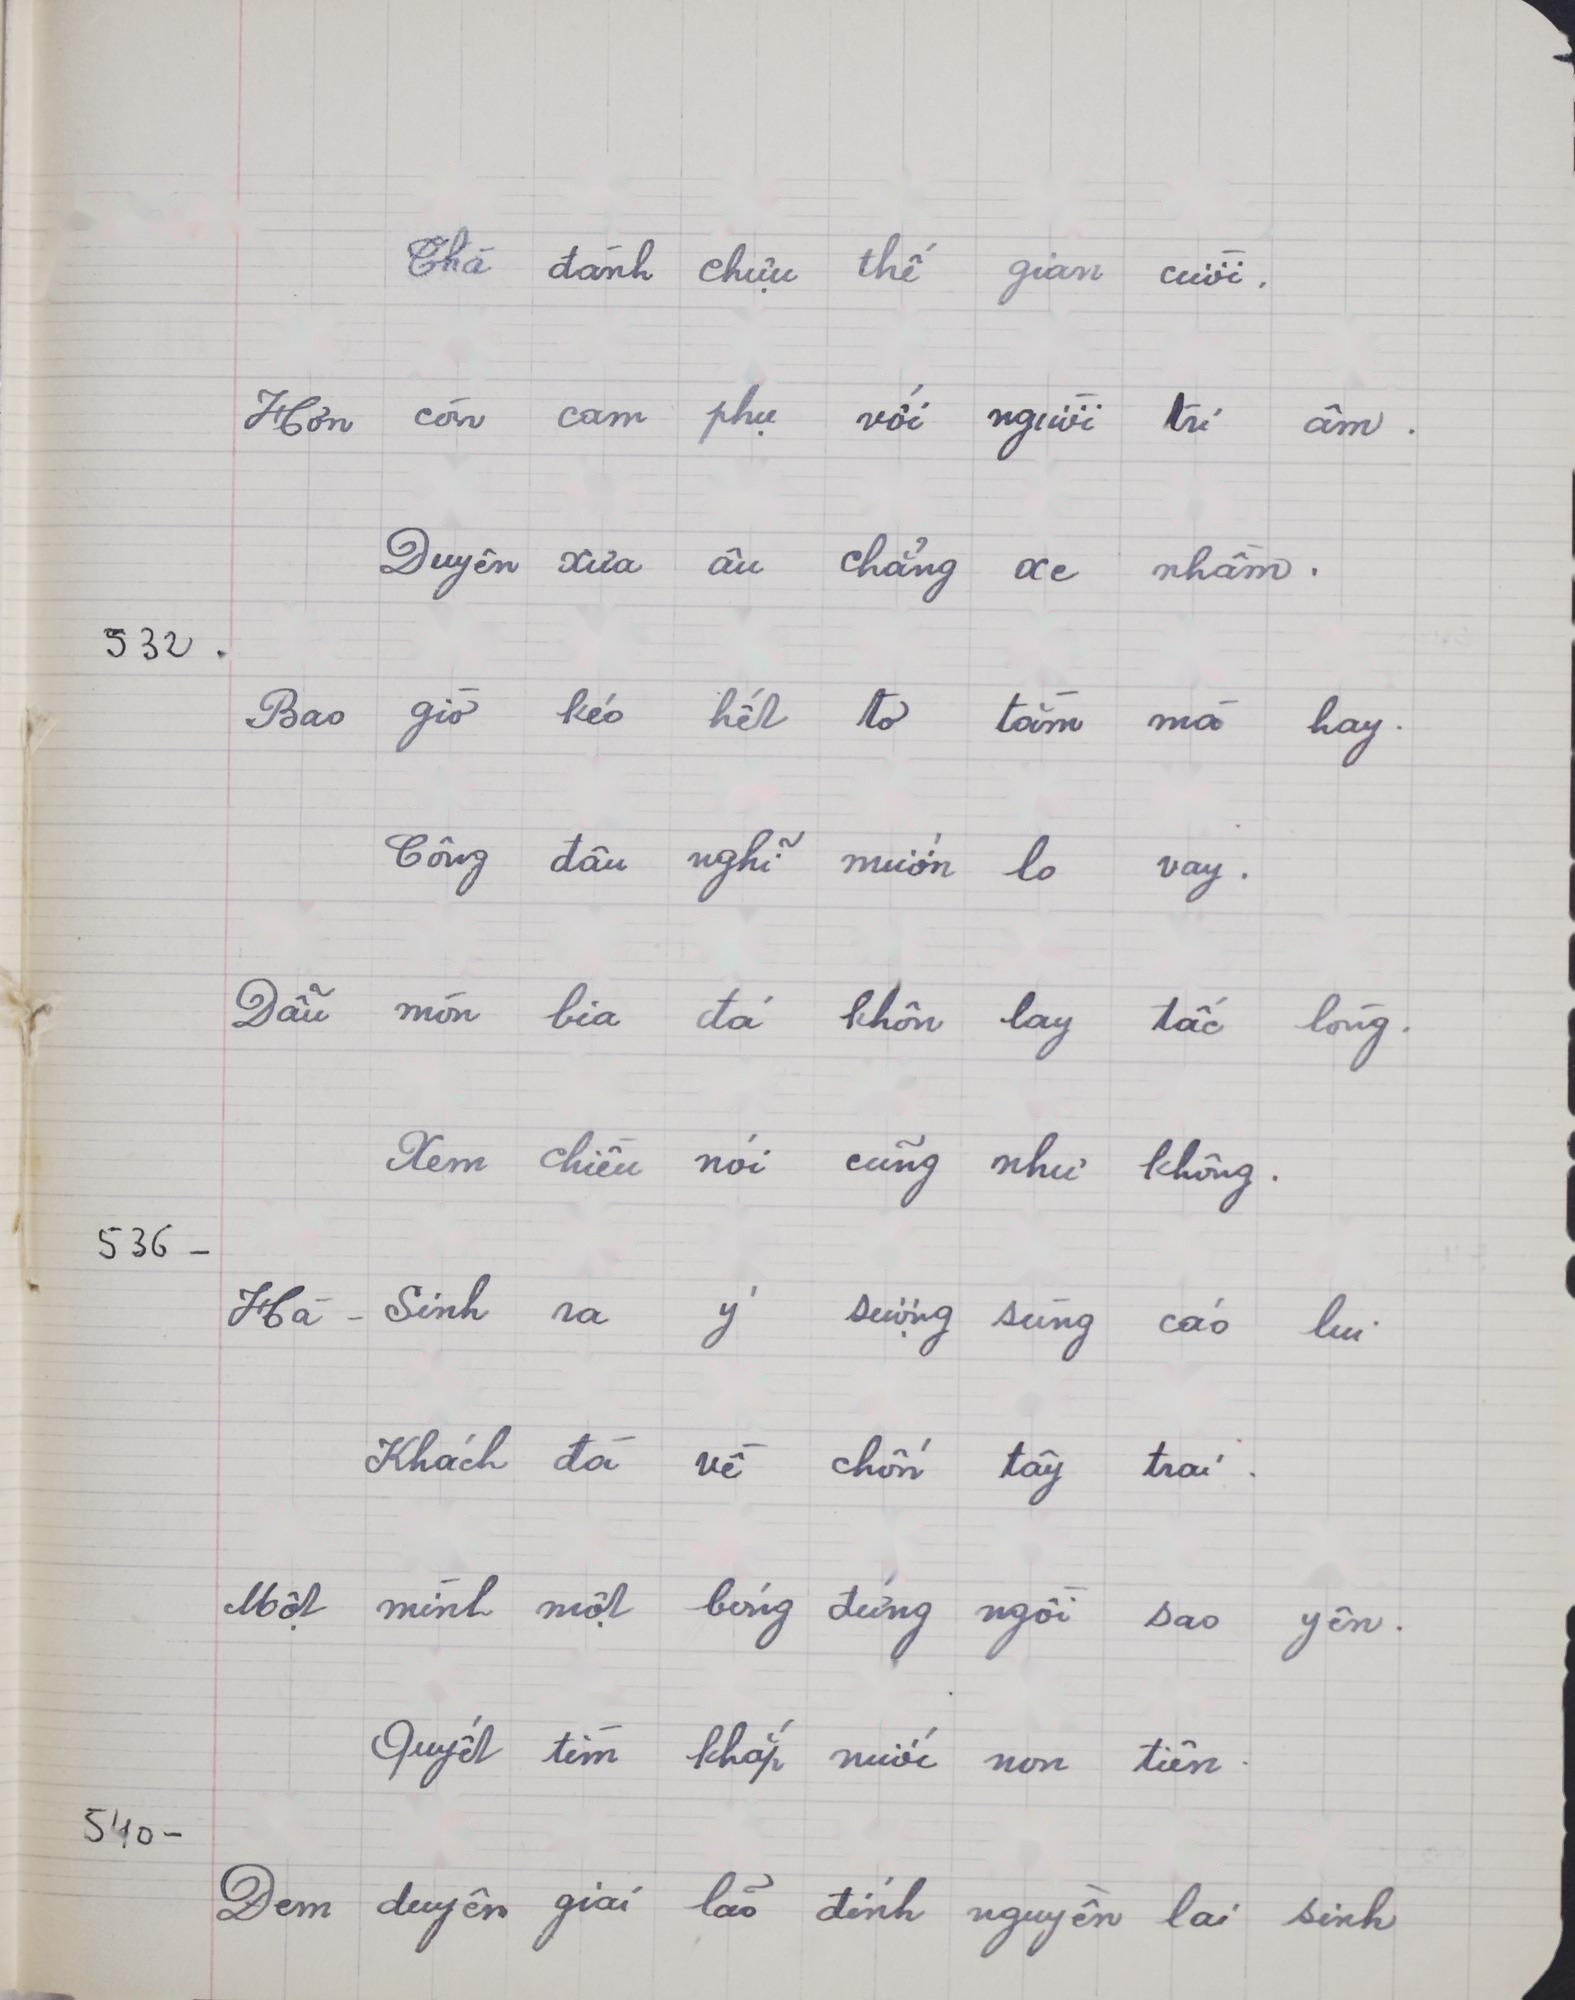 Thà đành chựu thế gian cười.
Hơn còn cam phụ với người tri âm.
Duyên xưa âu chẳng xe nhầm.
532.
Bao giờ kéo hết tơ tằm mà hay.
Công đâu nghĩ mướn lo vay.
Dẫu mòn bia đá khôn lay tấc lòng.
Xem chiều nói cũng như không.
536-
Hà-Sinh ra ý sượng sùng cáo lui.
Khách đà về chốn tây trai.
Một mình một bóng đứng ngồi sao yên.
Quyết tìm khắp nước non tiên.
540-
Đem duyên giai lão đính nguyền lai sinh